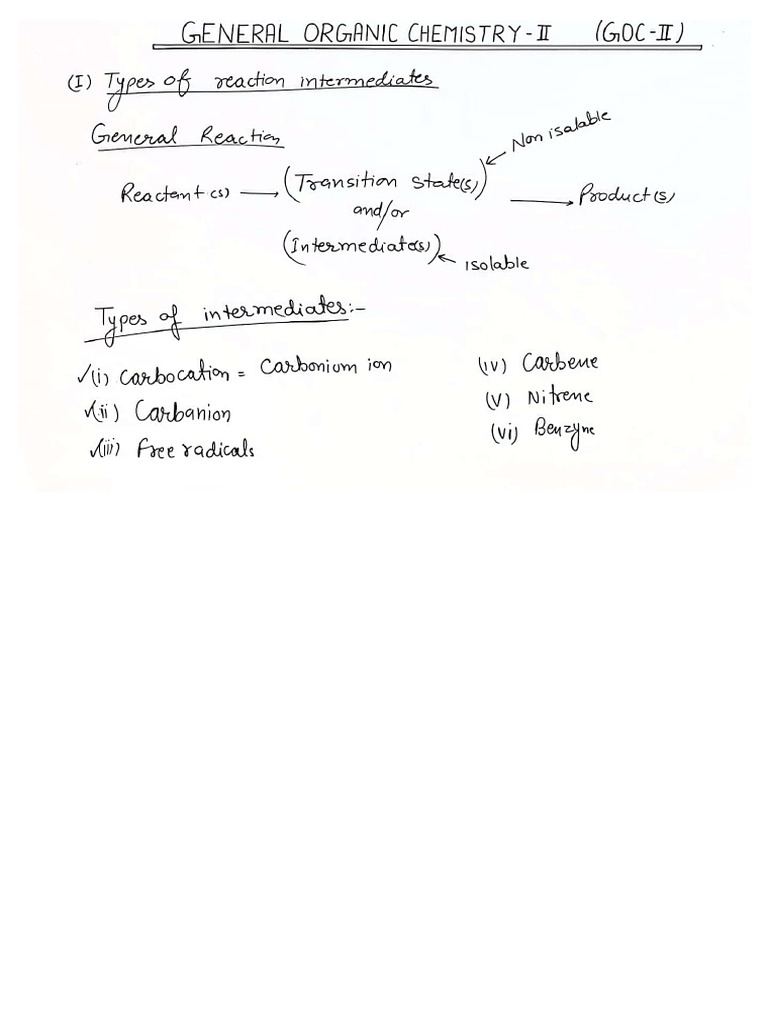 GENERAL ORGANIC CHEMISTRY-II (GOC-II)
(I) Types of reaction intermediates
General Reaction
Non isalable
Reactant(s) → (Transition state(s)) → Product(s)
and/or
(Intermediate(s))
isolable
Types of intermediates:-
✓(i) Carbocation = Carbonium ion
✓(ii) Carbanion
✓(iii) Free radicals
(iv) Carbene
(v) Nitrene
(vi) Benzyne